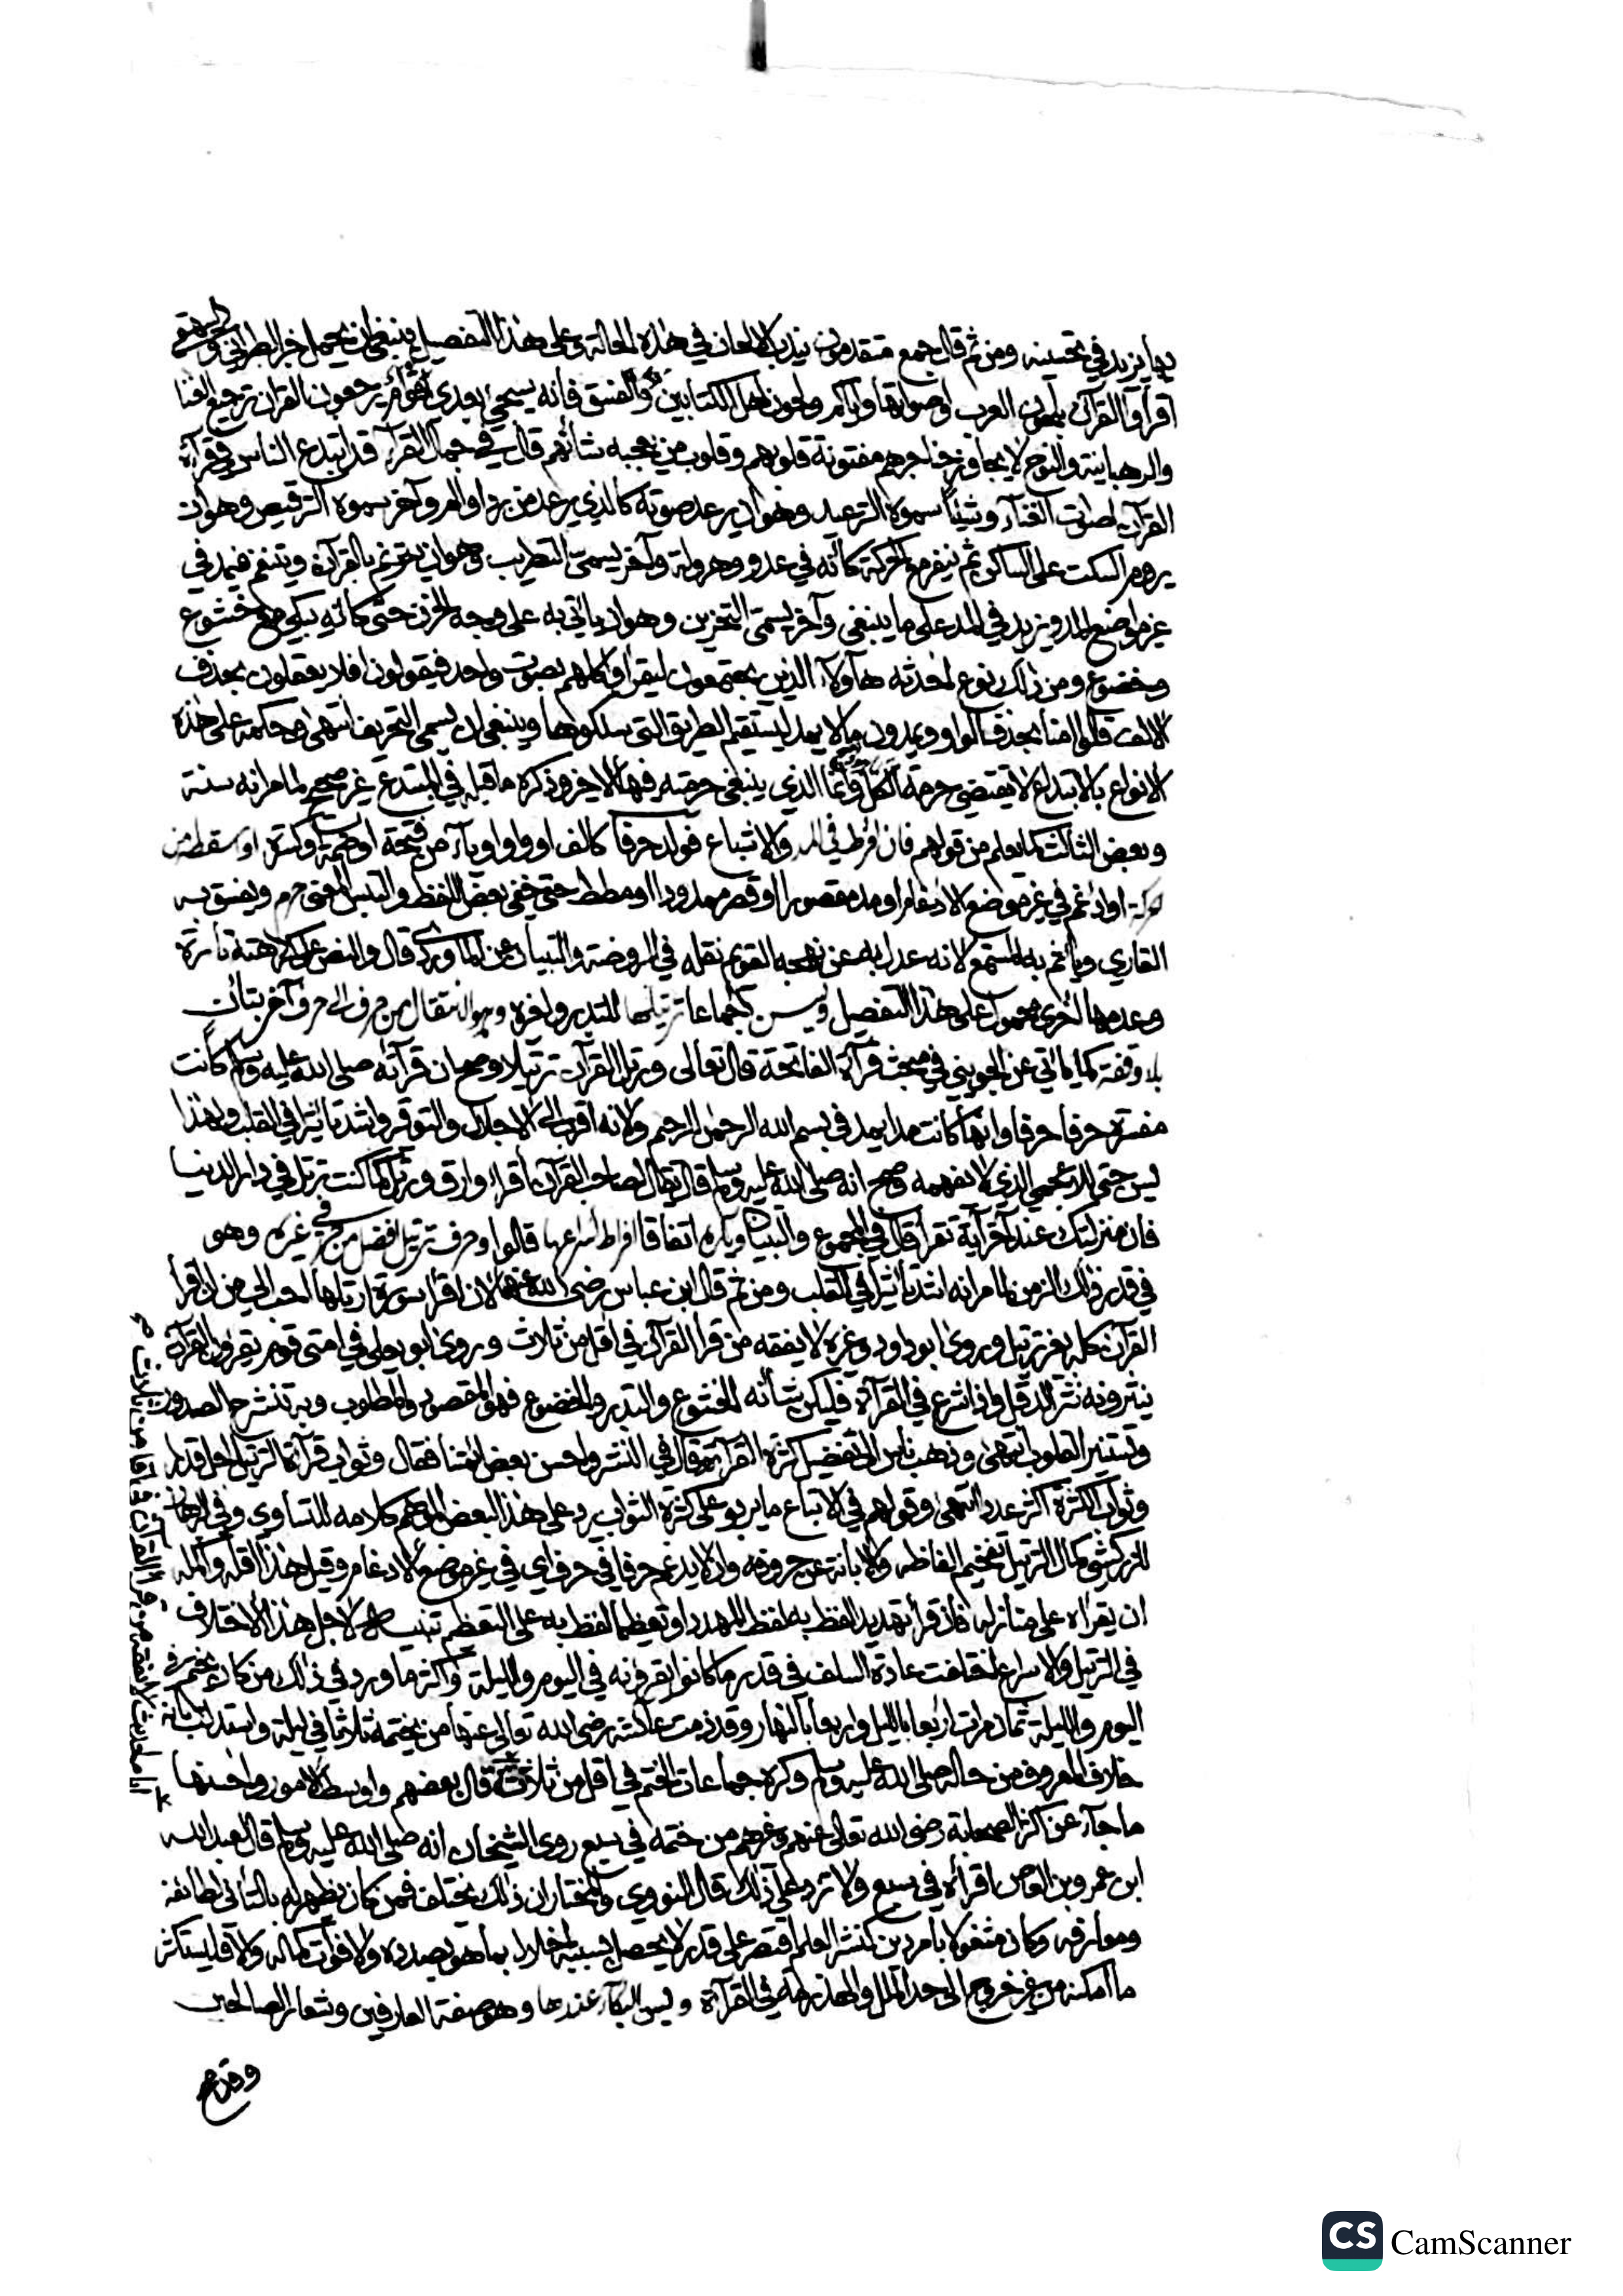 بها يزيد في تحسينه ومن ثم قال جمع متقدمون يندب الالحان في هذه الحالة وعلى هذا التفصيل ينبغي ان يحمل خبر الطبراني والبيهقي
اقرأوا القرآن بلحون العرب واصواتها واياكم ولحون اهل الكتابين والفسق فانه سيجئ بعدي اقوام يرجعون القران ترجيع الغنا
والرهبانية والنوح لا يجاوز حناجرهم مفتونة قلوبهم وقلوب من يعجبه شأنهم قال في جمال القرآء قد ابتدع الناس في قرآءة
القرآن اصوات الغنآء وشيئا سموه الترعيد وهو ان يرعد صوته كالذي يرعد من برد او الم وآخر سموه الترقيص وهو ان
يروم السكت على الساكن ثم ينفر مع الحركة كانه في عدو وهرولة وآخر يسمى التطريب وهو ان يترنم بالقرآن ويتنغم فيمد في
غير مواضع المد ويزيد في المد على ما ينبغي وآخر يسمى التحزين وهو ان ياتي به على وجه الحزن حتى كانه يبكي مع خشوع
وخضوع ومن ذلك نوع احدثه هآولآء الذين يجتمعون ليقرأوا كلهم بصوت واحد فيقولون افلا يعقلون بحذف
الالف قالوا امنا بحذف الواو ويمدون ما لا يمد ليستقيم الطريق التي سلكوها وينبغي ان يسمى التحريف انتهى وحكمه على هذه
الانواع بالابتداع لا يقتضي حرمة الكل وانما الذي ينبغي حرمته فيها الاخير وذكره ما قبله في المبتدع غير صحيح لما مر انه سنة
وبعض الثالث كما يعلم من قولهم فان افرط في المد والاشباع فولد حرفا كالف او واو او ياء من فتحة او ضمة او كسرة او اسقط من
حركة او ادغم في غير موضع الادغام او مد مقصورا او قصر ممدودا او مطط حتى خفي بعض اللفظ والتبس المعنى حرم ويفسق به
القاري وياثم به المستمع لانه عدل به عن نهجه القويم نقله في الروضة والتبيان عن الماوردي قال والنص على كراهته تارة
وعدمها اخرى محمول على هذا التفصيل ويسن اجماعا ترتيلها للتدبر ولغيره وهو الانتقال من حرف الى حرف آخر بتان
بلا وقفة كما ياتي عن الجويني في مبحث قرآءة الفاتحة قال تعالى ورتل القرآن ترتيلا وصح ان قرآءته صلى الله عليه وسلم كانت
مفسرة حرفا حرفا وانها كانت مدا يمد في بسم الله الرحمن الرحيم ولانه اقرب الى الاجلال والتوقير واشد تاثيرا في القلب ولهذا
يسن حتى للاعجمي الذي لا يفهمه وصح انه صلى الله عليه وسلم قال يقال لصاحب القرآن اقرأ وارق ورتل كما كنت ترتل في دار الدنيا
فان منزلتك عند آخر آية تقرأ قال في المجموع والتبيان ويكره اتفاقا افراط اسراعها قالوا وحرف ترتيل افضل من حرفي غيره وهو
في قدر ذلك الزمن لما مر انه اشد تاثيرا في القلب ومن ثم قال ابن عباس رضي الله عنهما لان اقرأ سورة ارتلها احب الي من ان اقرأ
القرآن كله بغير ترتيل وروى ابو داود وغيره لا يفقه من قرأ القرآن في اقل من ثلاث وروى ابو يعلى في امتى قوم يقرؤن القرآن
ينثرونه نثر الدقل واذا شرع في القرآءة فليكن شأنه الخشوع والتدبر والخضوع فهو المقصود والمطلوب وبه تنشرح الصدور
وتستنير القلوب انتهى وذهب ناس الى تفضيل كثرة القرآءة وقال في النشر واحسن بعض ائمتنا فقال وثواب قرآءة الترتيل اجل قدرا
وثواب الكثرة اكثر عددا انتهى وقولهم في الاتباع ما يربو على كثرة الثواب يرد على هذا البعض الموهم كلامه للتساوي وفي البرهان
للزركشي كمال الترتيل تفخيم الفاظه والابانة عن حروفه وان لا يدغم حرفا في حرف اي في غير موضع الادغام وقيل هذا اقله واكمله
ان يقراه على منازله فان قرأ تهديدا لفظ به لفظ المهدد او تعظيما لفظ به على التعظيم تنبيه لاجل هذا الاختلاف
في الترتيل والاسراع اختلفت عادة السلف في قدر ما كانوا يقرؤنه في اليوم والليلة واكثر ما ورد في ذلك من كان يختم في
اليوم والليلة ثمان مرات اربعا بالليل واربعا بالنهار وقد ذمت عائشة رضي الله تعالى عنها من يختمه ثلاثا في ليلة واستدلت بانه
خلاف المعروف من حاله صلى الله عليه وسلم وكره جماعات الختم في اقل من ثلاث قال بعضهم واوسط الامور واحسنها
ما جآء عن اكثر الصحابة رضي الله تعالى عنهم وغيرهم من ختمه في سبع روى الشيخان انه صلى الله عليه وسلم قال لعبد الله
ابن عمرو بن العاص اقرأه في سبع ولا تزد على ذلك قال النووي والمختار ان ذلك يختلف فمن كان يظهر له بالتأني لطائفه
ومعارفه وكان مشغولا بامر دين كنشر العلم اقتصر على قدر لا يحصل بسببه اخلال بما هو بصدده ولا فوات كماله والا فليستكثر
ما امكنه من غير خروج الى حد الملل والهذرمة في القرآءة ويسن البكآء عندها وهو صفة العارفين وشعار الصالحين
وقد مر
CS CamScanner